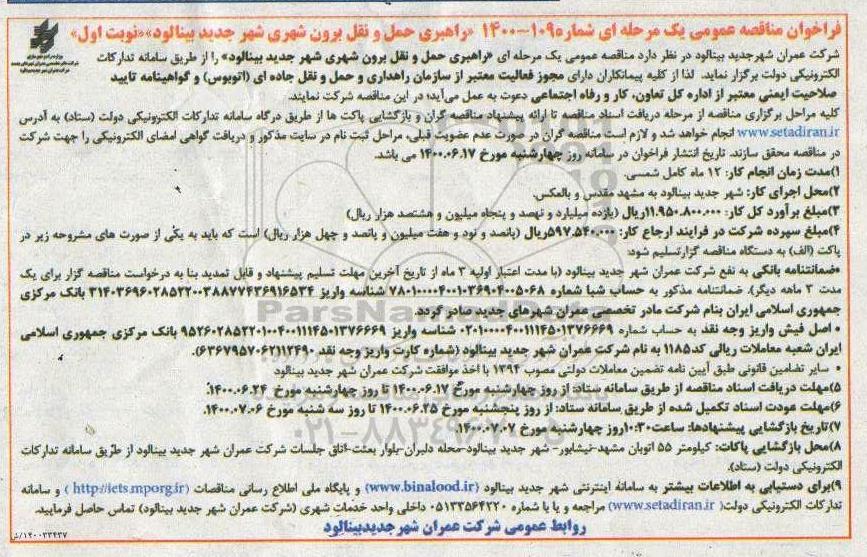 فراخوان مناقصه عمومی یک مرحله ای شماره ۱۰۹-۱۴۰۰ «راهبری حمل و نقل برون شهری شهر جدید بینالود»«نوبت اول»
شرکت عمران شهرجدید بینالود در نظر دارد مناقصه عمومی یک مرحله ای «راهبری حمل و نقل برون شهری شهر جدید بینالود» را از طریق سامانه تدارکات
الکترونیکی دولت برگزار نماید. لذا از کلیه پیمانکاران دارای مجوز فعالیت معتبر از سازمان راهداری و حمل و نقل جاده ای (اتوبوس) و گواهینامه تایید
صلاحیت ایمنی معتبر از اداره کل تعاون، کار و رفاه اجتماعی دعوت به عمل می‌آید در این مناقصه شرکت نمایند.
کلیه مراحل برگزاری مناقصه از مرحله دریافت اسناد مناقصه تا ارائه پیشنهاد مناقصه گران و بازگشایی پاکت ها از طریق درگاه سامانه تدارکات الکترونیکی دولت (ستاد) به آدرس
www.setadiran.ir انجام خواهد شد و لازم است مناقصه گران در صورت عدم عضویت قبلی، مراحل ثبت نام در سایت مذکور و دریافت گواهی امضای الکترونیکی را جهت شرکت
در مناقصه محقق سازند. تاریخ انتشار فراخوان در سامانه روز چهارشنبه مورخ ۱۴۰۰.۰۶.۱۷ می باشد.
۱)مدت زمان انجام کار: ۱۲ ماه کامل شمسی.
۲)محل اجرای کار: شهر جدید بینالود به مشهد مقدس و بالعکس.
۳)مبلغ برآورد کل کار: ۱۱.۹۵۰.۸۰۰.۰۰۰ریال (یازده میلیارد و نهصد و پنجاه میلیون و هشتصد هزار ریال)
۴)مبلغ سپرده شرکت در فرایند ارجاع کار: ۵۹۷.۵۴۰.۰۰۰ریال (پانصد و نود و هفت میلیون و پانصد و چهل هزار ریال) است که باید به یکی از صورت های مشروحه زیر در
پاکت (الف) به دستگاه مناقصه گزارتسلیم شود:
•ضمانتنامه بانکی به نفع شرکت عمران شهر جدید بینالود (با مدت اعتبار اولیه ۳ ماه از تاریخ آخرین مهلت تسلیم پیشنهاد و قابل تمدید بنا به درخواست مناقصه گزار برای یک
مدت ۳ ماهه دیگر). ضمانتنامه مذکور به حساب شبا شماره ۷۸۰۱۰۰۰۰۴۰۰۱۰۳۶۹۰۴۰۰۵۰۶۸ شناسه واریز ۳۱۴۰۳۶۹۶۰۲۸۵۲۲۰۰۳۸۸۷۷۴۳۶۹۱۶۵۳۴ بانک مرکزی
جمهوری اسلامی ایران بنام شرکت مادر تخصصی عمران شهرهای جدید صادر گردد.
• اصل فیش واریز وجه نقد به حساب شماره ۰۲۰۱۰۰۰۰۴۰۰۱۱۱۴۵۰۱۳۷۶۶۶۹ شناسه واریز ۹۵۲۶۰۲۸۵۲۲۰۱۰۰۴۰۰۱۱۱۴۵۰۱۳۷۶۶۶۹ بانک مرکزی جمهوری اسلامی
ایران شعبه معاملات ریالی کد۱۱۸۵ به نام شرکت عمران شهر جدید بینالود (شماره کارت واریز وجه نقد ۶۳۶۷۹۵۷۰۶۲۱۱۲۴۹۰).
• سایر تضامین قانونی طبق آیین نامه تضمین معاملات دولتی مصوب ۱۳۹۴ با اخذ موافقت شرکت عمران شهر جدید بینالود
۵)مهلت دریافت اسناد مناقصه از طریق سامانه ستاد: از روز چهارشنبه مورخ ۱۴۰۰.۰۶.۱۷ تا روز چهارشنبه مورخ ۱۴۰۰.۰۶.۲۴.
۶)مهلت عودت اسناد تکمیل شده از طریق سامانه ستاد: از روز پنجشنبه مورخ ۱۴۰۰.۰۶.۲۵ تا روز سه شنبه مورخ ۱۴۰۰.۰۷.۰۶.
۷)تاریخ بازگشایی پیشنهادها: ساعت۱۰:۳۰روز چهارشنبه مورخ ۱۴۰۰.۰۷.۰۷
۸)محل بازگشایی پاکات: کیلومتر ۵۵ اتوبان مشهد-نیشابور- شهر جدید بینالود-محله دلبران-بلوار بعثت-اتاق جلسات شرکت عمران شهر جدید بینالود از طریق سامانه تدارکات
الکترونیکی دولت (ستاد).
۹)برای دستیابی به اطلاعات بیشتر به سامانه اینترنتی شهر جدید بینالود (www.binalood.ir) و پایگاه ملی اطلاع رسانی مناقصات (http://iets.mporg.ir) و سامانه
تدارکات الکترونیکی دولت( www.setadiran.ir) مراجعه و یا با شماره ۰۵۱۳۳۵۶۴۲۲۰ داخلی واحد خدمات شهری (شرکت عمران شهر جدید بینالود) تماس حاصل فرمایید.
روابط عمومی شرکت عمران شهرجدیدبینالود
۱۴۰۰۳۳۴۳۷/ش
ParsNamadData
۰۲۱-۸۸۳۴۹۶۷۰-۵